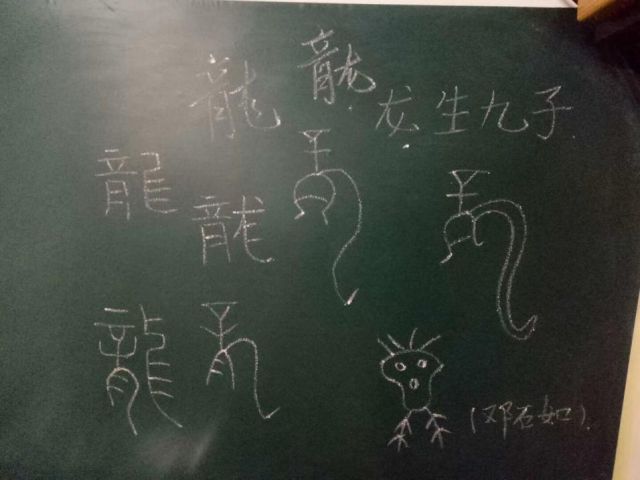 龍 龍
龙生九子
龍
龍
龍
(邓石如)